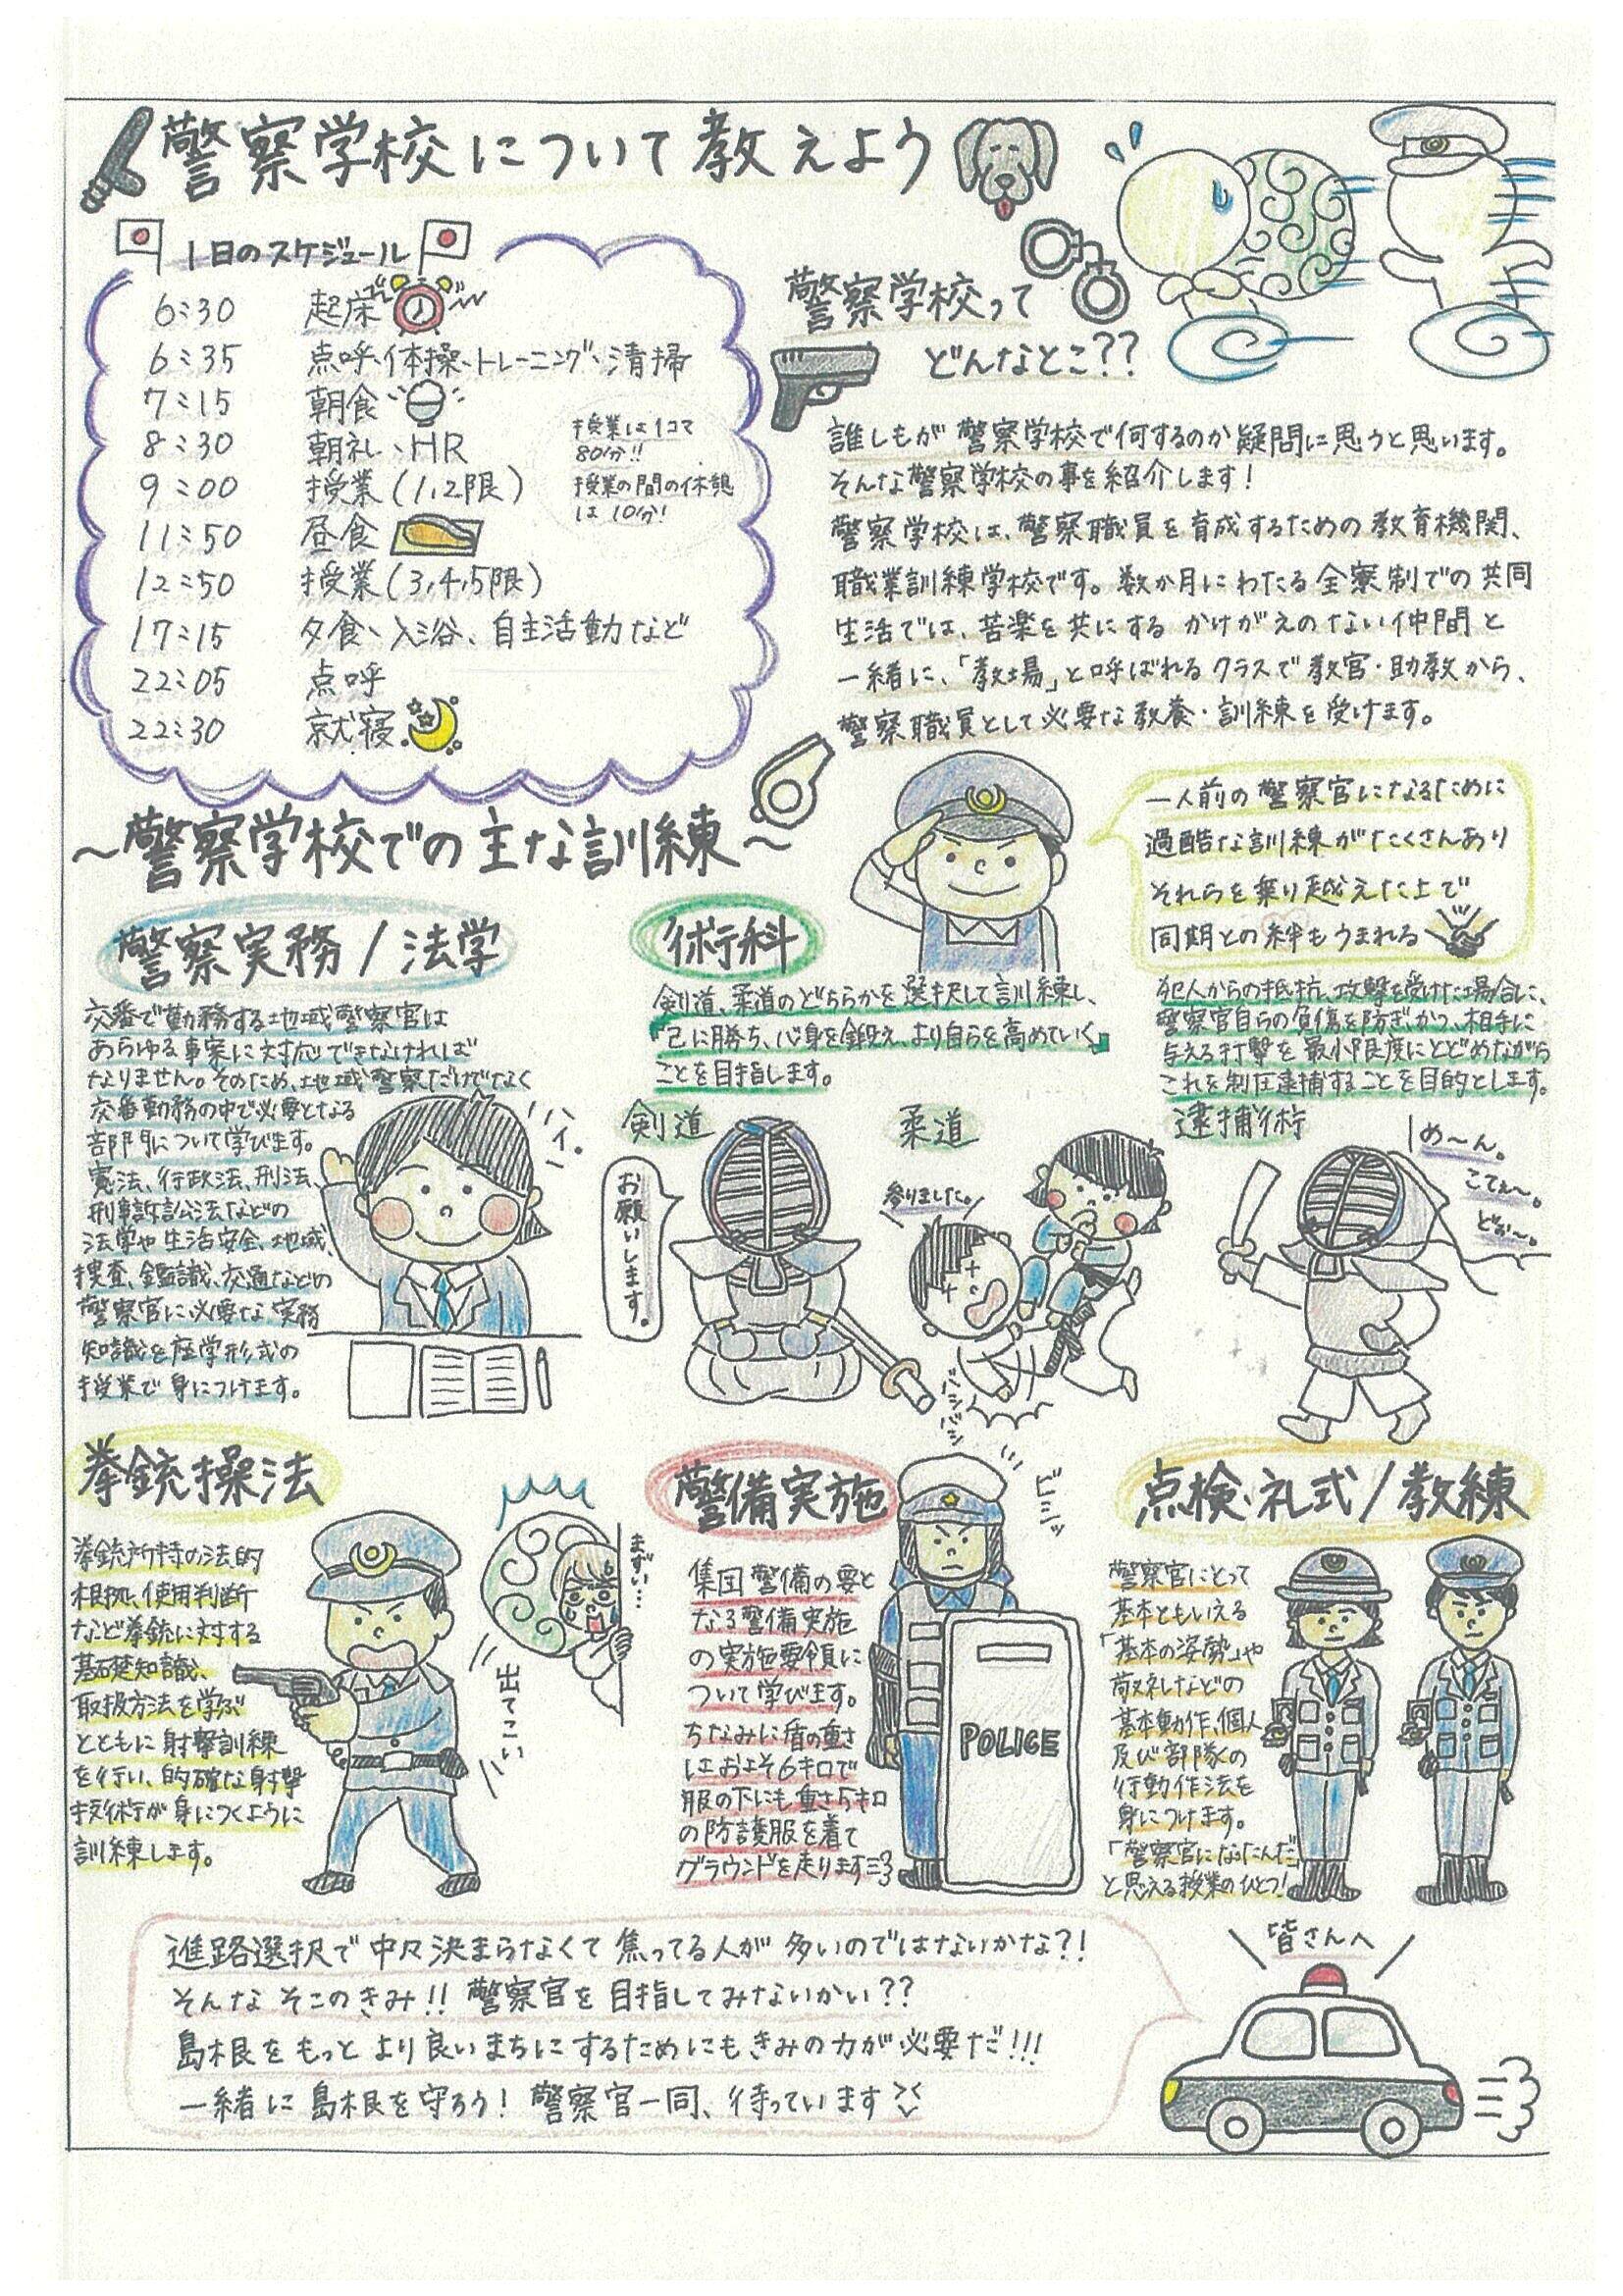 警察学校について教えよう
1日のスケジュール
6:30 起床
6:35 点呼、体操、トレーニング、清掃
7:15 朝食
8:30 朝礼、HR
9:00 授業(1,2限)
11:50 昼食
12:50 授業(3,4,5限)
17:15 夕食、入浴、自主活動など
22:05 点呼
22:30 就寝
授業は1コマ
80分!!
授業の間の休憩
は10分!
警察学校って
どんなとこ??
誰しもが警察学校で何するのか疑問に思うと思います。
そんな警察学校の事を紹介します!
警察学校は、警察職員を育成するための教育機関、
職業訓練学校です。数か月にわたる全寮制での共同
生活では、苦楽を共にするかけがえのない仲間と
一緒に、「教場」と呼ばれるクラスで教官・助教から、
警察職員として必要な教養・訓練を受けます。
一人前の警察官になるために
過酷な訓練がたくさんあり
それらを乗り越えた上で
同期との絆もうまれる
～警察学校での主な訓練～
警察実務/法学
交番で勤務する地域警察官は
あらゆる事案に対応できなければ
なりません。そのため、地域警察だけでなく
交番勤務の中で必要となる
部門について学びます。
憲法、行政法、刑法、
刑事訴訟法などの
法学や生活安全、地域、
捜査、鑑識、交通などの
警察官に必要な実務
知識を座学形式の
授業で身につけます。
ハイ。
術科
剣道、柔道のどちらかを選択して訓練し、
「己に勝ち、心身を鍛え、より自らを高めていく」
ことを目指します。
剣道
お願いします。
柔道
参りました。
バシバシ
犯人からの抵抗、攻撃を受けた場合に、
警察官自らの負傷を防ぎ、かつ、相手に
与える打撃を最小限度にとどめながら
これを制圧逮捕することを目的とします。
逮捕術
め～ん。
こてぇ～。
どぉ～。
拳銃操法
拳銃所持の法的
根拠、使用判断
など拳銃に対する
基礎知識、
取扱方法を学ぶ
とともに射撃訓練
を行い、的確な射撃
技術が身につくように
訓練します。
まずい…
出てこい
警備実施
集団警備の要と
なる警備実施
の実施要領に
ついて学びます。
ちなみに盾の重さ
はおよそ6キロで
服の下にも重さ5キロ
の防護服を着て
グラウンドを走ります
ビシッ
POLICE
点検、礼式/教練
警察官にとって
基本ともいえる
「基本の姿勢」や
敬礼などの
基本動作、個人
及び部隊の
行動作法を
身につけます。
「警察官になったんだ」
と思える授業のひとつ!
皆さんへ
進路選択で中々決まらなくて焦ってる人が多いのではないかな?!
そんなそこのきみ!! 警察官を目指してみないかい??
島根をもっとより良いまちにするためにもきみの力が必要だ!!!
一緒に島根を守ろう! 警察官一同、待っています